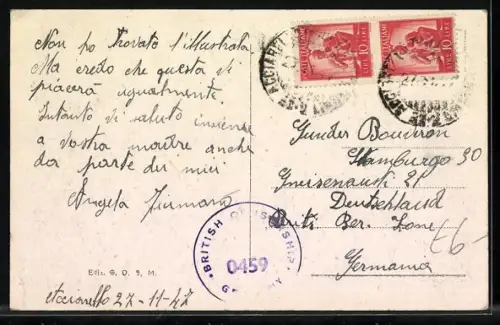 Non po trovato l'illustrata
Ma credo che questa ti
piacerà ugualmente.
Intanto ti saluto insieme
a vostra madre anche
da parte dei miei
Angela
POSTE ITALIANE
10 LIRE
POSTE ITALIANE
10 LIRE
Gunder
Hamburgo 30
Gneisenaustr. 21
Deutschland
Briti Ber. Zone
Germania
£6-
BRITISH CENSORSHIP
0459
GERMANY
Ediz. G. O. S. M.
27-11-47